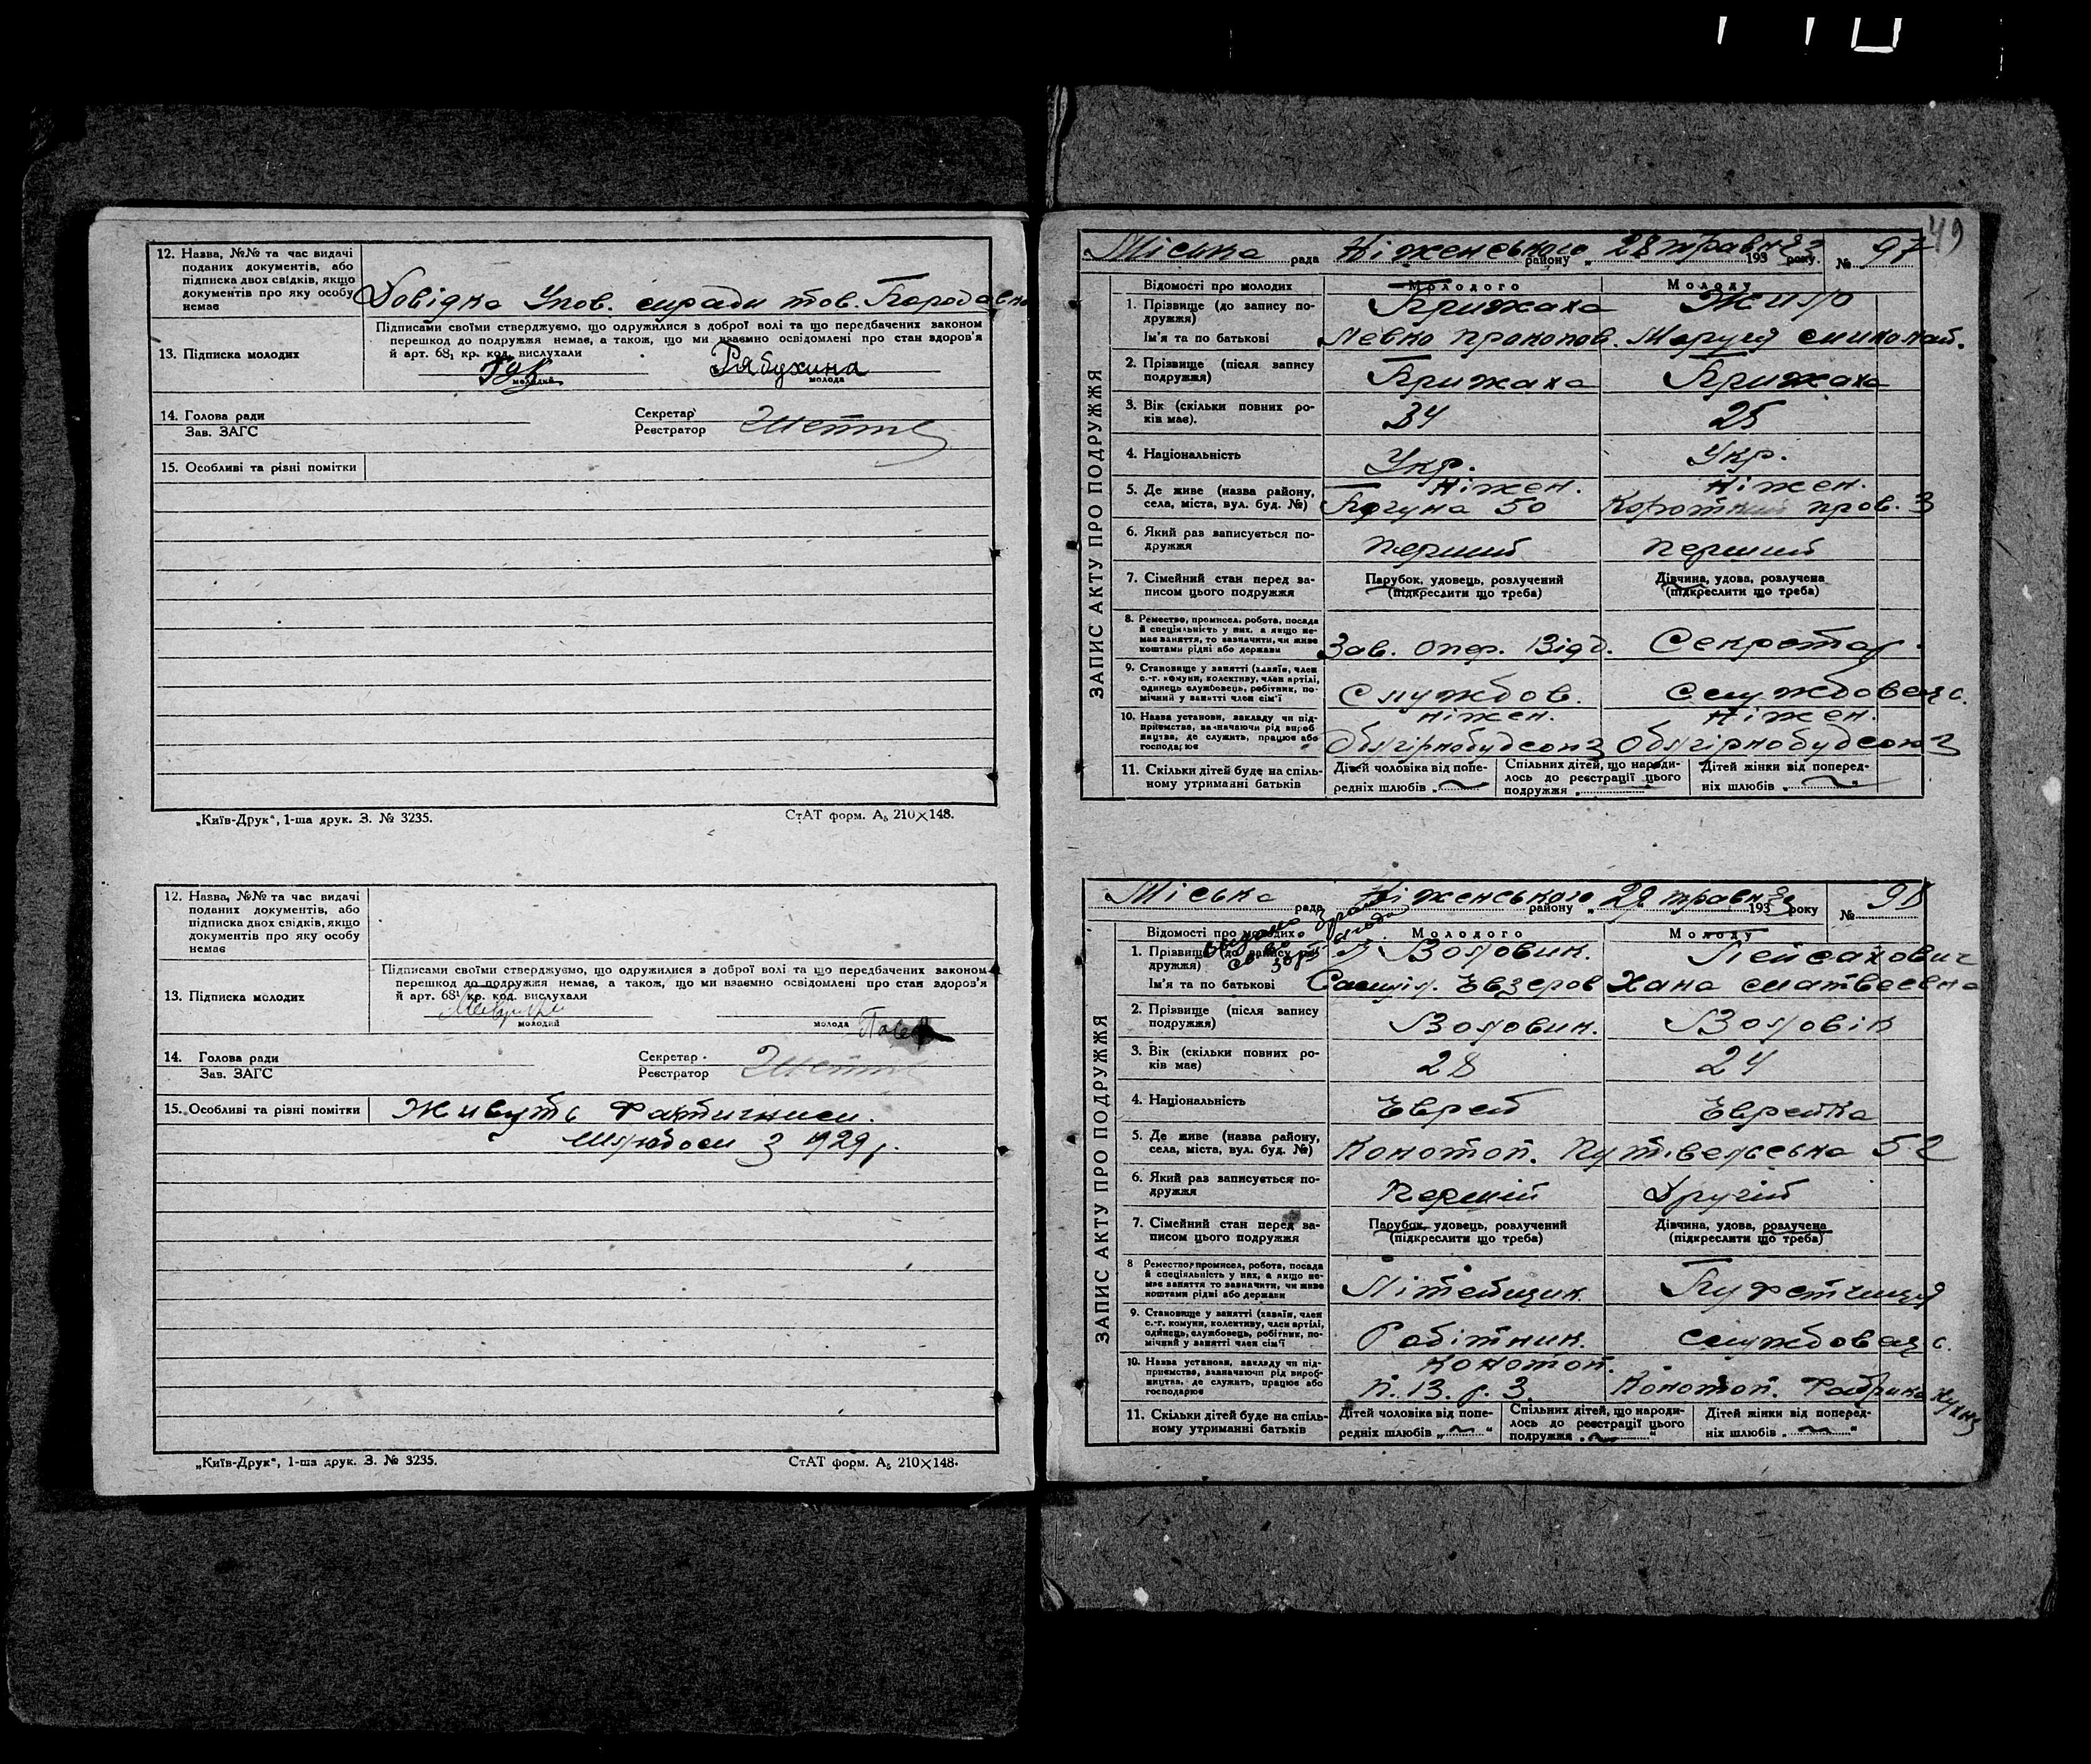 12. Назва, №№ та час видачі
поданих документів, або
підписка двох свідків, якщо
документів про яку особу
немає
Довідка Упов. міради тов. Бородавко
13. Підписка молодих
Підписами своїми стверджуємо, що одружилися з доброї волі та що передбачених законом
перешкод до подружжя немає, а також, що ми взаємно освідомлені про стан здоров'я
й арт. 68₁ кр. код. вислухали
Рябухина
молодий
молода
14. Голова ради
Зав. ЗАГС
Секретар
Реєстратор
15. Особливі та різні помітки
„Київ-Друк“, 1-ша друк. З. № 3235.
СтАТ форм. А₅ 210×148.
12. Назва, №№ та час видачі
поданих документів, або
підписка двох свідків, якщо
документів про яку особу
немає
13. Підписка молодих
Підписами своїми стверджуємо, що одружилися з доброї волі та що передбачених законом
перешкод до подружжя немає, а також, що ми взаємно освідомлені про стан здоров'я
й арт. 68¹ кр. код. вислухали
молодий
молода
14. Голова ради
Зав. ЗАГС
Секретар
Реєстратор
15. Особливі та різні помітки
Живуть фактичним
шлюбом з 1929 р.
„Київ-Друк“, 1-ша друк. З. № 3235.
СтАТ форм. А₅ 210×148.
49
Міська рада Ніженського району „ 28 травн 1933 року. № 97
ЗАПИС АКТУ ПРО ПОДРУЖЖЯ
Відомості про молодих
Молодого
Молоду
1. Прізвище (до запису по-
дружжя)
Крижаха
Жило
Ім'я та по батькові
Левко Прокопов.
Маруся Миколай.
2. Прізвище (після запису
подружжя)
Крижаха
Крижаха
3. Вік (скільки повних ро-
ків має).
34
25
4. Національність
Укр.
Укр.
5. Де живе (назва району,
села, міста, вул. буд. №)
Ніжен.
Богуна 50
Ніжен.
Короткий пров. 3
6. Який раз записується по-
дружжя
Перший
Перший
7. Сімейний стан перед за-
писом цього подружжя
Парубок, удовець, розлучений
(підкреслити що треба)
Дівчина, удова, розлучена
(підкреслити що треба)
8. Ремество, промисел, робота, посада
й спеціяльність у них, а якщо не-
має заняття, то зазначити, чи живе
коштами рідні або держави
Зав. Опер. Відд.
Секретар
9. Становище у занятті (хазяїн, член
с.-г. комуни, колективу, член артілі,
одинець службовець, робітник, по-
мічний у занятті член сім'ї
Службов.
Службовець
10. Назва установи, закладу чи під-
приємства, зазначаючи рід вироб-
ництва, де служить, працює або
господарює
Ніжен.
Облгірнобудсоюз
Ніжен.
Облгірнобудсоюз
11. Скільки дітей буде на спіль-
ному утриманні батьків
Дітей чоловіка від попе-
редніх шлюбів „
Спільних дітей, що народи-
лось до реєстрації цього
подружжя „
Дітей жінки від поперед-
ніх шлюбів „
Міська рада Ніженського району „ 29 травн 1933 року № 98
ЗАПИС АКТУ ПРО ПОДРУЖЖЯ
Відомості про молодих
Молодого
Молоду
1. Прізвище (до запису по-
дружжя)
Воловик.
Пейсахович
Ім'я та по батькові
Самуїл. Евзеров
Хана Матвеевна
2. Прізвище (після запису
подружжя)
Воловик.
Воловік
3. Вік (скільки повних ро-
ків має)
28
24
4. Національність
Еврей
Еврейка
5. Де живе (назва району,
села, міста, вул. буд. №)
Конотоп. Путівельська 52
6. Який раз записується по-
дружжя
Першій
Другій
7. Сімейний стан перед за-
писом цього подружжя
Парубок, удовець, розлучений
(підкреслити що треба)
Дівчина, удова, розлучена
(підкреслити що треба)
8 Ремество, промисел, робота, посада
й спеціяльність у них, а якщо не-
має заняття то зазначити, чи живе
коштами рідні або держави
Літейщик.
Буфетчиця
9. Становище у занятті (хазяїн, член
с.-г. комуни, колективу, член артілі,
одинець, службовець, робітник, по-
мічний у занятті член сім'ї
Робітник.
Службовець
10. Назва установи, закладу чи під-
приємства, зазначаючи рід вироб-
ництва, де служить, працює або
господарює
Конотоп.
П. В. Р. З.
Конотоп. Фабрика кухн
11. Скільки дітей буде на спіль-
ному утриманні батьків
Дітей чоловіка від попе-
редніх шлюбів „ “
Спільних дітей, що народи-
лось до реєстрації цього
подружжя „ “
Дітей жінки від поперед-
ніх шлюбів „ “